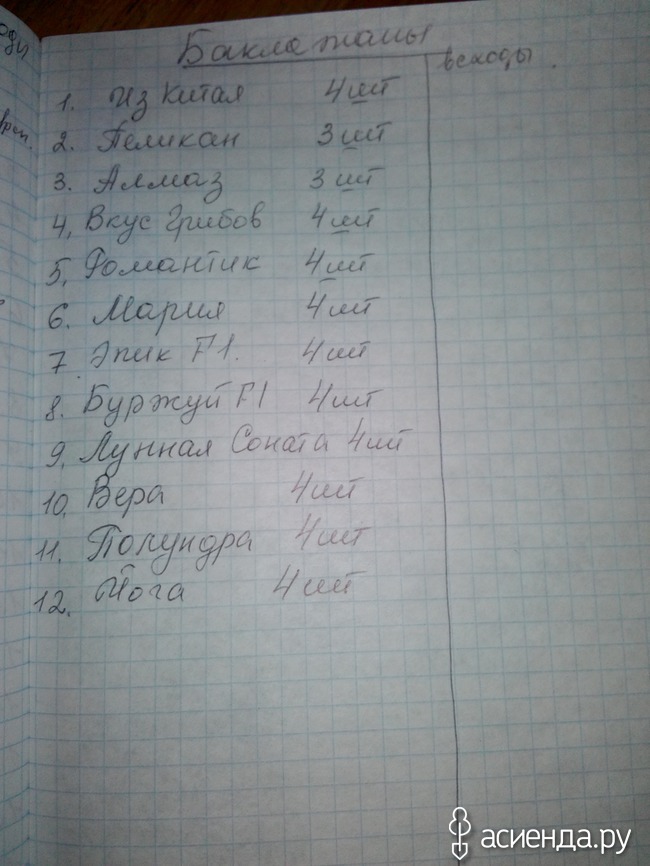 Баклажаны
всходы.
1. Из Китая 4 шт
2. Пеликан 3 шт
3. Алмаз 3 шт
4, Вкус Грибов 4 шт
5, Романтик 4 шт
6. Мария 4 шт
7 Эпик F1. 4 шт
8. Буржуй F1 4 шт
9, Лунная Соната 4 шт
10, Вера 4 шт
11. Полундра 4 шт
12. Йога 4 шт
асиенда.ру